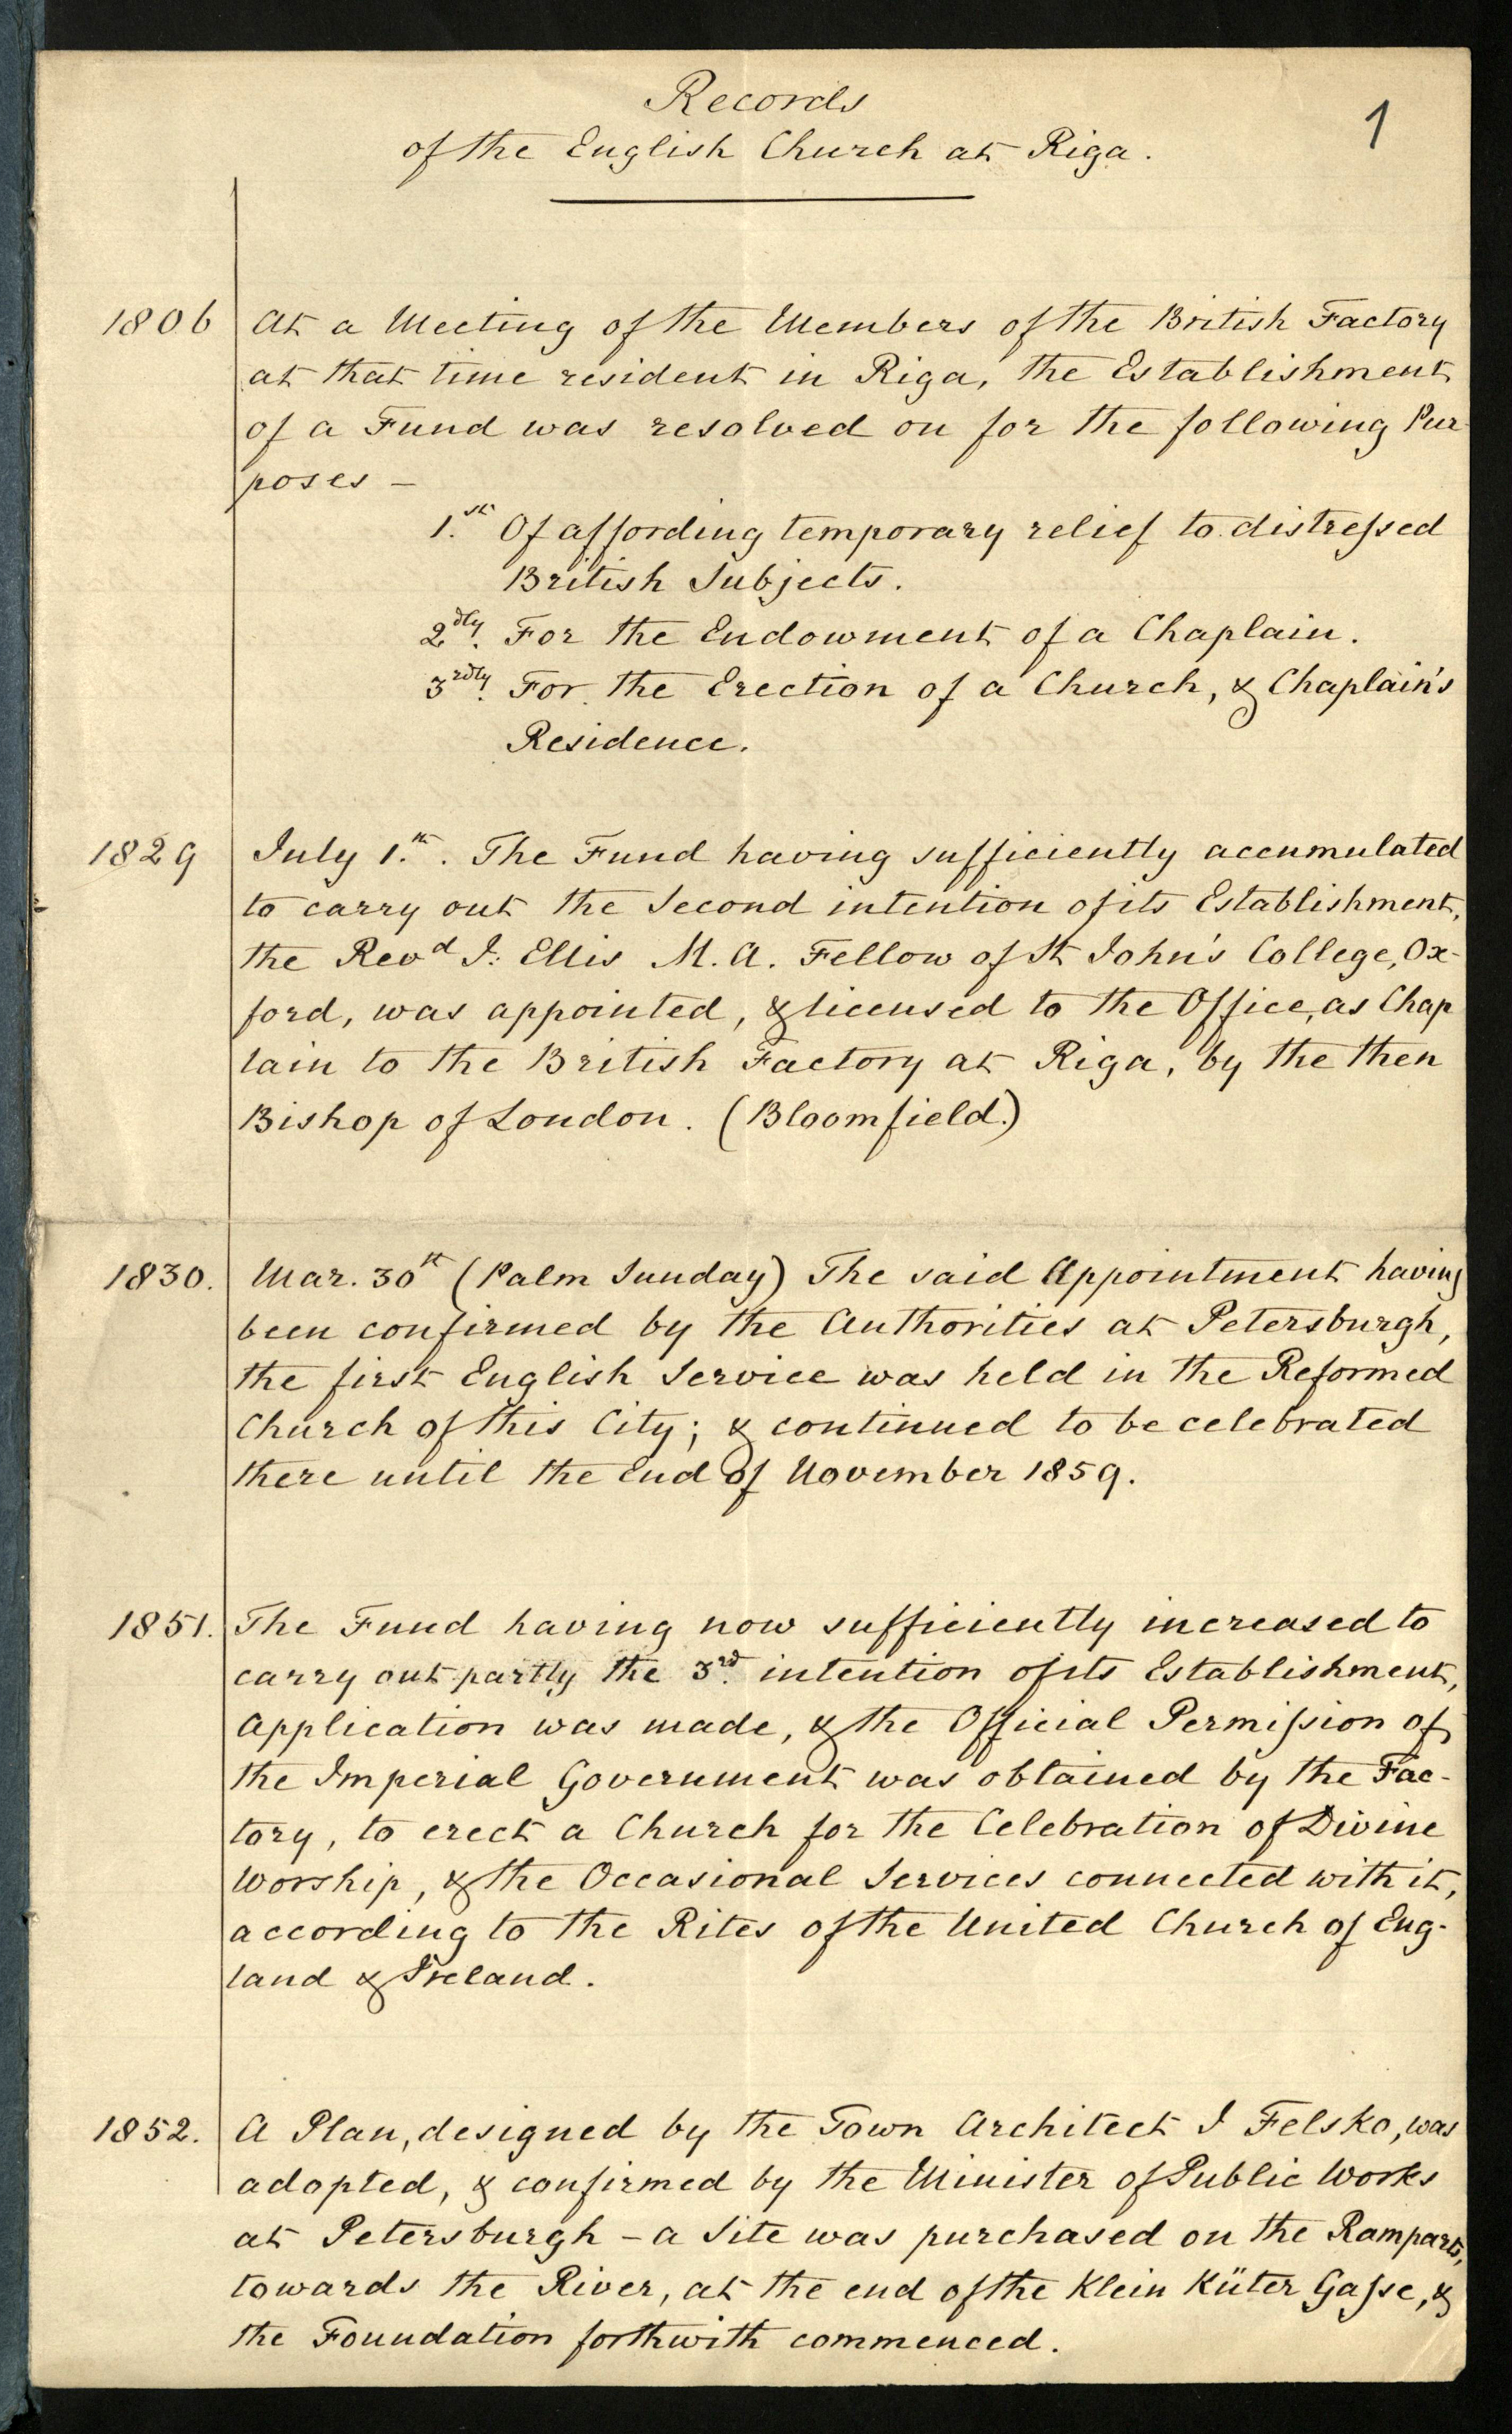 Records
1
of the English Church at Riga.
1806 At a Meeting of the Members of the British Factory
at that time resident in Riga, the Establishment
of a Fund was resolved on for the following Pur-
poses –
1.st Of affording temporary relief to distressed
British Subjects.
2dly. For the Endowment of a Chaplain.
3rdly. For the Erection of a Church, & Chaplain's
Residence.
1829 July 1.st. The Fund having sufficiently accumulated
to carry out the Second intention of its Establishment,
the Revd J: Ellis M.A. Fellow of St John's College, Ox-
ford, was appointed, & licensed to the Office, as Chap
lain to the British Factory at Riga, by the then
Bishop of London. (Bloomfield.)
1830. Mar. 30st (Palm Sunday) The said Appointment having
been confirmed by the Authorities at Petersburgh,
the first English Service was held in the Reformed
Church of this City; & continued to be celebrated
there until the End of November 1859.
1851. The Fund having now sufficiently increased to
carry out partly the 3rd. intention of its Establishment,
Application was made, & the Official Permission of
the Imperial Government was obtained by the Fac-
tory, to erect a Church for the Celebration of Divine
Worship, & the Occasional Services connected with it,
according to the Rites of the United Church of Eng-
land & Ireland.
1852. A Plan, designed by the Town Architect J Felsko, was
adopted, & confirmed by the Minister of Public Works
at Petersburgh – a Site was purchased on the Ramparts,
towards the River, at the end of the Klein Küter Gasse, &
the Foundation forthwith commenced.